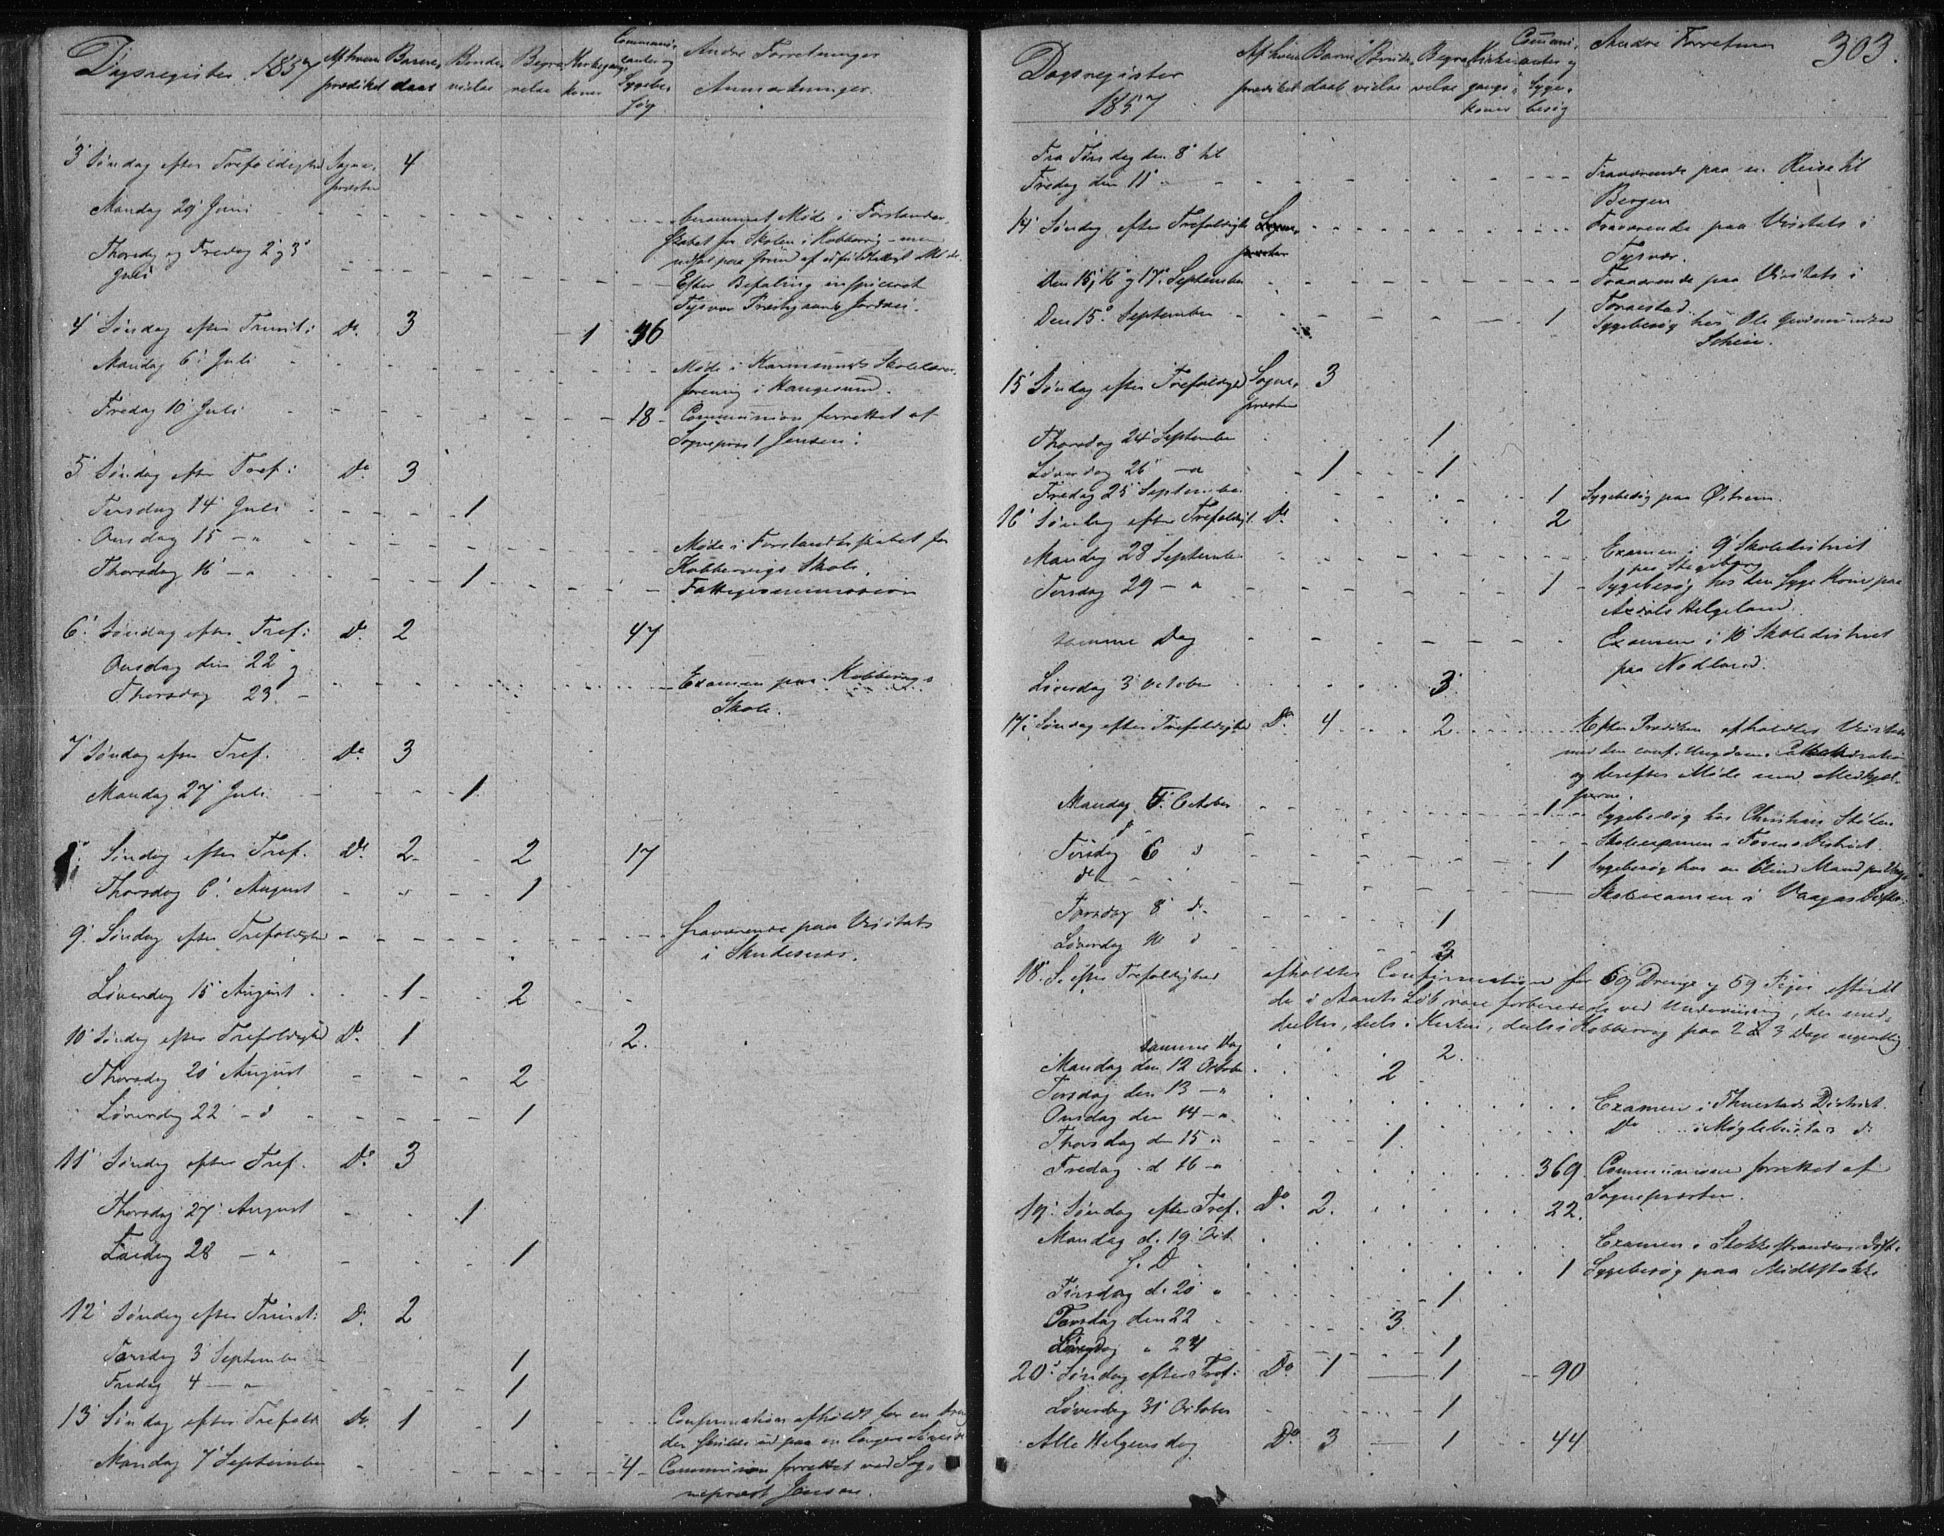 Dagsregister 1857
Af hvem prædiket
Barne daab
Brude vielse
Begra velse
Kirkegangs koner
Communi- canter og Sygebe- søg
Andre Forretninger
Anmærkninger.
3' Søndag efter Trefoldighed Sogne- præsten 4
Mandag 29 Juni
berammet Møde i Forstander-
skabet for Skolen i Kobbervig - men
udsat paa Grund af
Thorsdag og Fredag 2' og 3'
Juli
Efter Befaling inspiceret
Tysvær Præstegaards Jorder.
4' Søndag efter Trinit: Do 3 1 46
Mandag 6' Juli
Møde i Karmsunds Skolelærer-
forening i Haugesund.
Fredag 10' Juli 18 Communion forrettet af
Sognepræst Jensen.
5' Søndag efter Tref: Do 3
Tirsdag 14 Juli 1
Onsdag 15 - "
Møde i Forstanderskabet for
Kobbervigs Skole.
Thorsdag 16' - " 1
Fattigcommission
6' Søndag efter Tref: Do 2 47
Onsdag den 22 og
Thorsdag 23 -
Examen paa Kobbervigs
Skole.
7' Søndag efter Tref. Do 3
Mandag 27 Juli 1
8' Søndag efter Tref. Do 2 2 17
Thorsdag 6' August 1
9' Søndag efter Trefoldighed
fraværende paa Visitats
i Skudesnæs.
Løverdag 15' August 1 2
10' Søndag efter Trefoldighed Do 1 2.
Thorsdag 20' August 2
Løverdag 22 - d 1
11' Søndag efter Tref. Do 3
Thorsdag 27' August 1
28 - " 1
12' Søndag efter Trinit: Do 2
Torsdag 3' September 1
Fredag 4 - " 1
13' Søndag efter Trefold: Do 1 1
Confirmation afholdt for en Dreng
der skulde ud paa en længere
Mandag 7' September 4 Communion forrettet ved Sog-
nepræst Jensen.
303.
Dagsregister
1857
Af hvem prædiket
Barne daab
Brude vielse
Begra velse
Kirke gangs koner
Communi- canter og Syge- besøg
Andre Forretn
Fra Tirsdag den 8' til
Fredag den 11'
Fraværende paa en Reise til
Bergen
14' Søndag efter Trefoldighed Sogne- præsten
Fraværende paa Visitats i
Tysvær.
Den 15', 16' og 17' September
Fraværende paa Visitats i
Torvestad
Den 15' September 1
Sygebesøg hos Ole Gudmundsen
15' Søndag efter Trefoldighed Sogne- præsten 3
Thorsdag 24' September 1
Løverdag 26' - " 1 1
Fredag 25' September 1 Sygebesøg paa Østrem.
16' Søndag efter Trefoldigh. Do 2
Mandag 28 September
Examen i 9 Skoledistrict
paa Stegeberg
Tirsdag 29 - " 1
Sygebesøg hos den syge Kone paa
Helgeland.
samme Dag
Examen i 10' Skoledistrict
paa Nodland.
Løverdag 3' October 3
17' Søndag efter Trefoldighed Do 4 2
Efter Prædiken afholdtes Visitats
med den conf. Ungdom, Catechisation
og derefter Møde med Medhjæl-
perne.
Mandag 5' October 1
Sygebesøg hos Christian Stølen
Skoleexamen i Fosens District.
Tirsdag 6 d
do 1
Sygebesøg hos en blind Mand paa
Skoleexamen i Vaagas Distr.
Torsdag 8' d. 1
Løverdag 10 d 3
18' S. efter Trefoldighed afholdtes Confirmation for 69 Drenge og 59 Piger efterat
de i Aarets Løb vare forberedede ved Underviisning, der med-
deeltes, deels i Kirken, deels i Kobbervig paa 2 à 3 Dage ugentlig.
samme Dag 2.
Mandag den 12 October 2
Tirsdag den 13 - "
Examen i Thuestads District.
Onsdag den 14 - "
Do i Møglebustas d:
Thorsdag d 15 " 1
Fredag d 16 - " 369. Communion forrettet af
Sognepræsten.
19' Søndag efter Tref. Do 2. 22.
Mandag d. 19' Oct.
Examen i Stokkestrandens Distr.
S. D 1 Sygebesøg paa Midtstokke
Tirsdag d. 20 " 1
Torsdag den 22 3
Løverdag " 24 1
20' Søndag efter Tref: Do 1 1 90
Løverdag 31' October 1
Alle Helgens dag Do 3 1 44